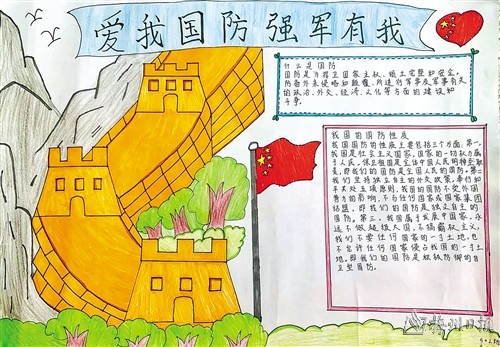 爱我国防强军有我
什么是国防
国防是为捍卫国家主权、领土完整和安全,
防备外来侵略和颠覆,所进行军事及军事有关
的政治、外交、经济、文化等方面的建设和
斗争。
我国的国防性质
我国国防的性质主要包括三个方面:第一,
我国是社会主义国家,国家的一切权力属
于人民,保卫祖国是全体中国人民的神圣职
责,即我们的国防是全国人民的国防。第二
我们坚持独立自主的外交政策,奉行和
平共处五项原则,我国的国防不受外国
势力的影响,不与任何国家或国家集团
结盟,即我们的国防是独立自主的
国防。第三,我国属于发展中国家,永
远不做超级大国,不搞霸权主义,
我们不要任何国家的一寸土地,也
不允许任何国家侵占我国的一寸土
地,即我们的国防是积极防御的自
卫型国防。
梅州日报